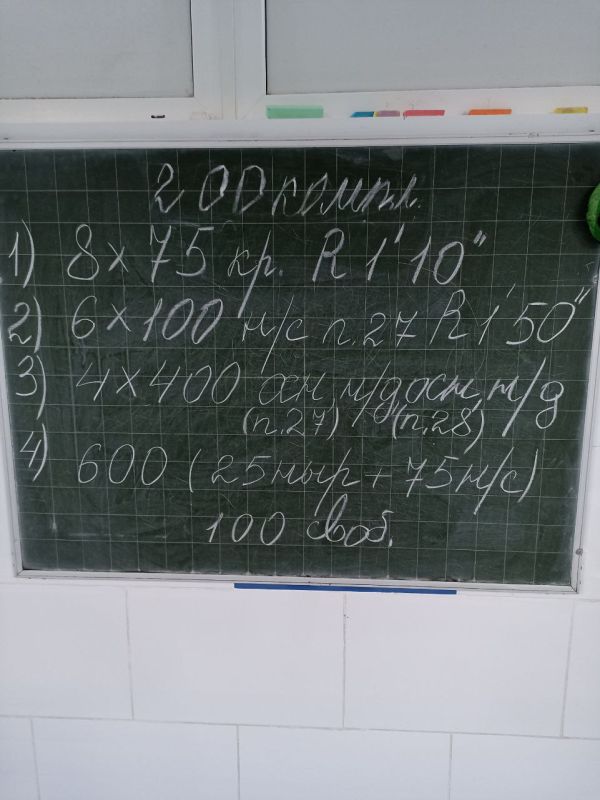 200 компл.
1) 8×75 кр. R 1'10"
2) 6×100 н/с п.27 R 1'50"
3) 4×400 осн, н/д, осн, т/д
(п.27) (п.28)
4) 600 (25 ныр + 75 н/с)
100 своб.